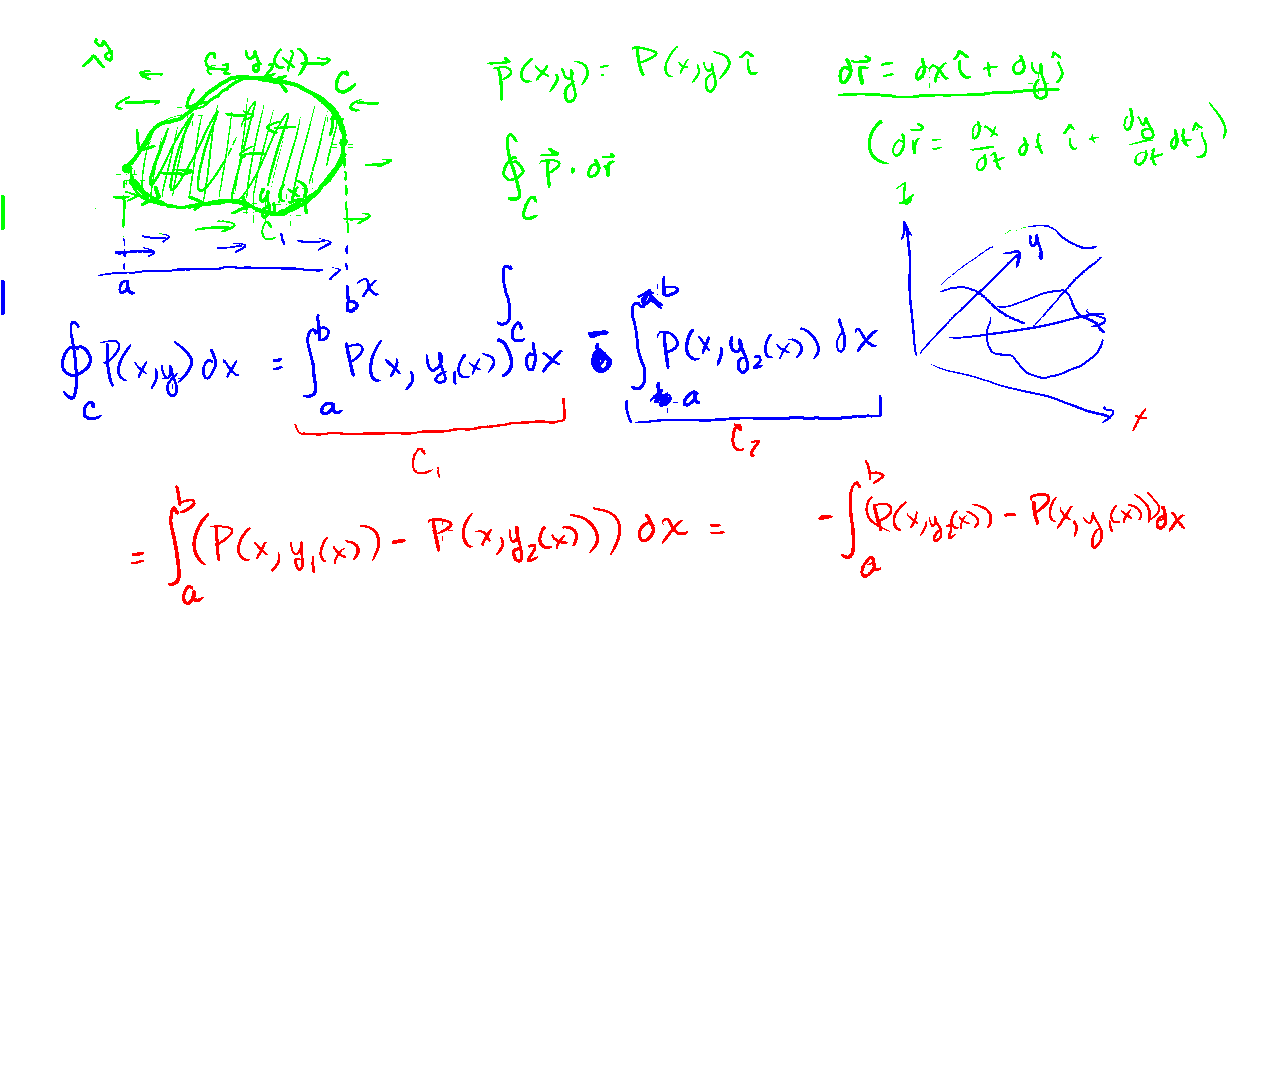 y C₂ y₂(x) C
y₁(x)
C₁
a b x
p⃗(x,y) = P(x,y) î
dr⃗ = dx î + dy ĵ
(dr⃗ = dx/dt dt î + dy/dt dt ĵ)
∮_C p⃗ · dr⃗
z y x
∫_C
∮_C P(x,y) dx = ∫_a^b P(x, y₁(x)) dx - ∫_a^b P(x, y₂(x)) dx
C₁ C₂
= ∫_a^b (P(x, y₁(x)) - P(x, y₂(x))) dx = - ∫_a^b (P(x, y₂(x)) - P(x, y₁(x))) dx